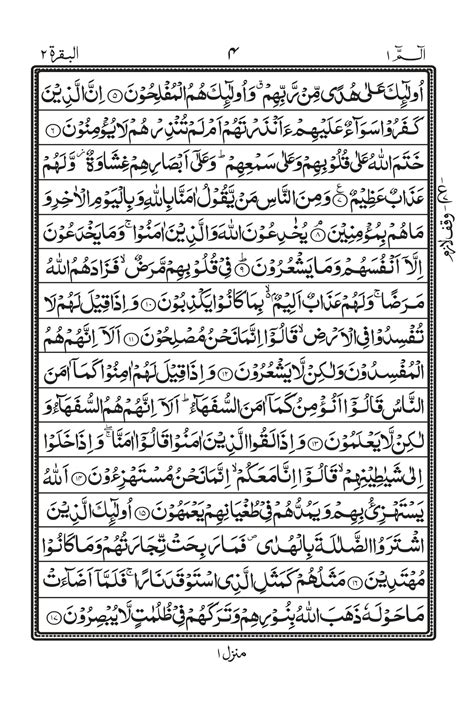 الٓمّٓ ١ ٤ البقرة ٢
اُولٰٓئِكَ عَلٰى هُدًى مِّنْ رَّبِّهِمْ ۗ وَاُولٰٓئِكَ هُمُ الْمُفْلِحُوْنَ ۝٥ اِنَّ الَّذِيْنَ
كَفَرُوْا سَوَآءٌ عَلَيْهِمْ ءَاَنْذَرْتَهُمْ اَمْ لَمْ تُنْذِرْهُمْ لَا يُؤْمِنُوْنَ ۝٦
خَتَمَ اللّٰهُ عَلٰى قُلُوْبِهِمْ وَعَلٰى سَمْعِهِمْ ؕ وَعَلٰٓى اَبْصَارِهِمْ غِشَاوَةٌ ؗ وَّلَهُمْ
عَذَابٌ عَظِيْمٌ ۝٧ وَمِنَ النَّاسِ مَنْ يَّقُوْلُ اٰمَنَّا بِاللّٰهِ وَبِالْيَوْمِ الْاٰخِرِ وَ
مَا هُمْ بِمُؤْمِنِيْنَ ۝٨ يُخٰدِعُوْنَ اللّٰهَ وَالَّذِيْنَ اٰمَنُوْا ۚ وَمَا يَخْدَعُوْنَ
اِلَّآ اَنْفُسَهُمْ وَمَا يَشْعُرُوْنَ ۝٩ فِيْ قُلُوْبِهِمْ مَّرَضٌ ۙ فَزَادَهُمُ اللّٰهُ
مَرَضًا ۚ وَلَهُمْ عَذَابٌ اَلِيْمٌ ۢ ۙ بِمَا كَانُوْا يَكْذِبُوْنَ ۝١٠ وَاِذَا قِيْلَ لَهُمْ لَا
تُفْسِدُوْا فِى الْاَرْضِ ۙ قَالُوْٓا اِنَّمَا نَحْنُ مُصْلِحُوْنَ ۝١١ اَلَآ اِنَّهُمْ هُمُ
الْمُفْسِدُوْنَ وَلٰكِنْ لَّا يَشْعُرُوْنَ ۝١٢ وَاِذَا قِيْلَ لَهُمْ اٰمِنُوْا كَمَآ اٰمَنَ
النَّاسُ قَالُوْٓا اَنُؤْمِنُ كَمَآ اٰمَنَ السُّفَهَآءُ ؕ اَلَآ اِنَّهُمْ هُمُ السُّفَهَآءُ وَ
لٰكِنْ لَّا يَعْلَمُوْنَ ۝١٣ وَاِذَا لَقُوا الَّذِيْنَ اٰمَنُوْا قَالُوْٓا اٰمَنَّا ۖۚ وَاِذَا خَلَوْا
اِلٰى شَيٰطِيْنِهِمْ ۙ قَالُوْٓا اِنَّا مَعَكُمْ ۙ اِنَّمَا نَحْنُ مُسْتَهْزِءُوْنَ ۝١٤ اَللّٰهُ
يَسْتَهْزِئُ بِهِمْ وَيَمُدُّهُمْ فِيْ طُغْيَانِهِمْ يَعْمَهُوْنَ ۝١٥ اُولٰٓئِكَ الَّذِيْنَ
اشْتَرَوُا الضَّلٰلَةَ بِالْهُدٰى ۪ فَمَا رَبِحَتْ تِّجَارَتُهُمْ وَمَا كَانُوْا
مُهْتَدِيْنَ ۝١٦ مَثَلُهُمْ كَمَثَلِ الَّذِى اسْتَوْقَدَ نَارًا ۚ فَلَمَّآ اَضَآءَتْ
مَا حَوْلَهٗ ذَهَبَ اللّٰهُ بِنُوْرِهِمْ وَتَرَكَهُمْ فِيْ ظُلُمٰتٍ لَّا يُبْصِرُوْنَ ۝١٧
وقف لازم
منزل ١